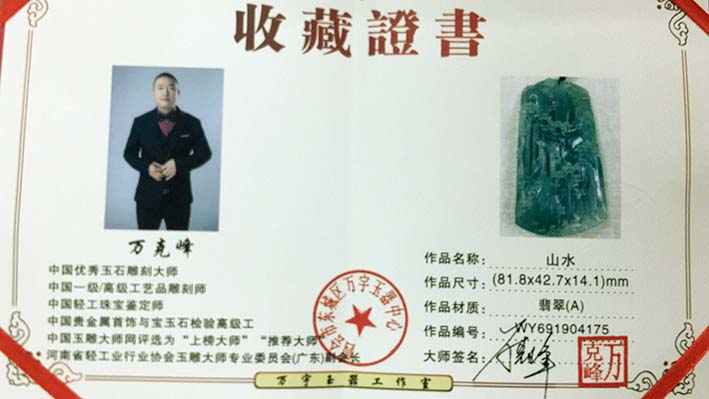 收藏證書
万克峰
中国优秀玉石雕刻大师
中国一级/高级工艺品雕刻师
中国轻工珠宝鉴定师
中国贵金属首饰与宝玉石检验高级工
中国玉雕大师网评选为“上榜大师”“推荐大师”
河南省轻工业行业协会玉雕大师专业委员会(广东)副会长
作品名称：山水
作品尺寸：(81.8x42.7x14.1)mm
作品材质：翡翠(A)
作品编号：WY691904175
大师签名：
万克峰
万宇玉器工作室